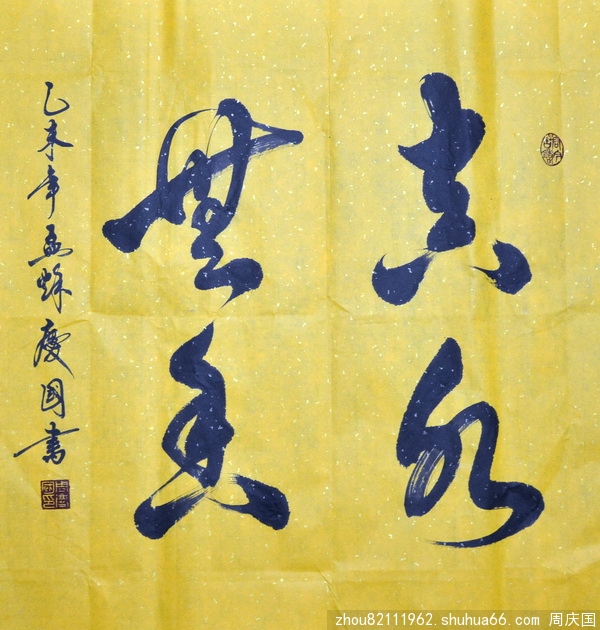 真水
無香
乙未年孟秋慶國書
zhou82111962.shuhua66.com 周庆国